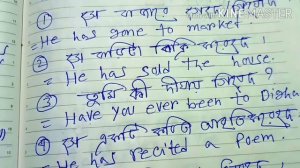 ① সে বাজারে
KINEMASTER
= He has gone to market
② সে বাড়িটি বিক্রি করেছে।
= He has sold the house.
③ তুমি কী দীঘায় গিয়েছ?
= Have you ever been to Digha
④ সে একটি
= He has recited a Poem.